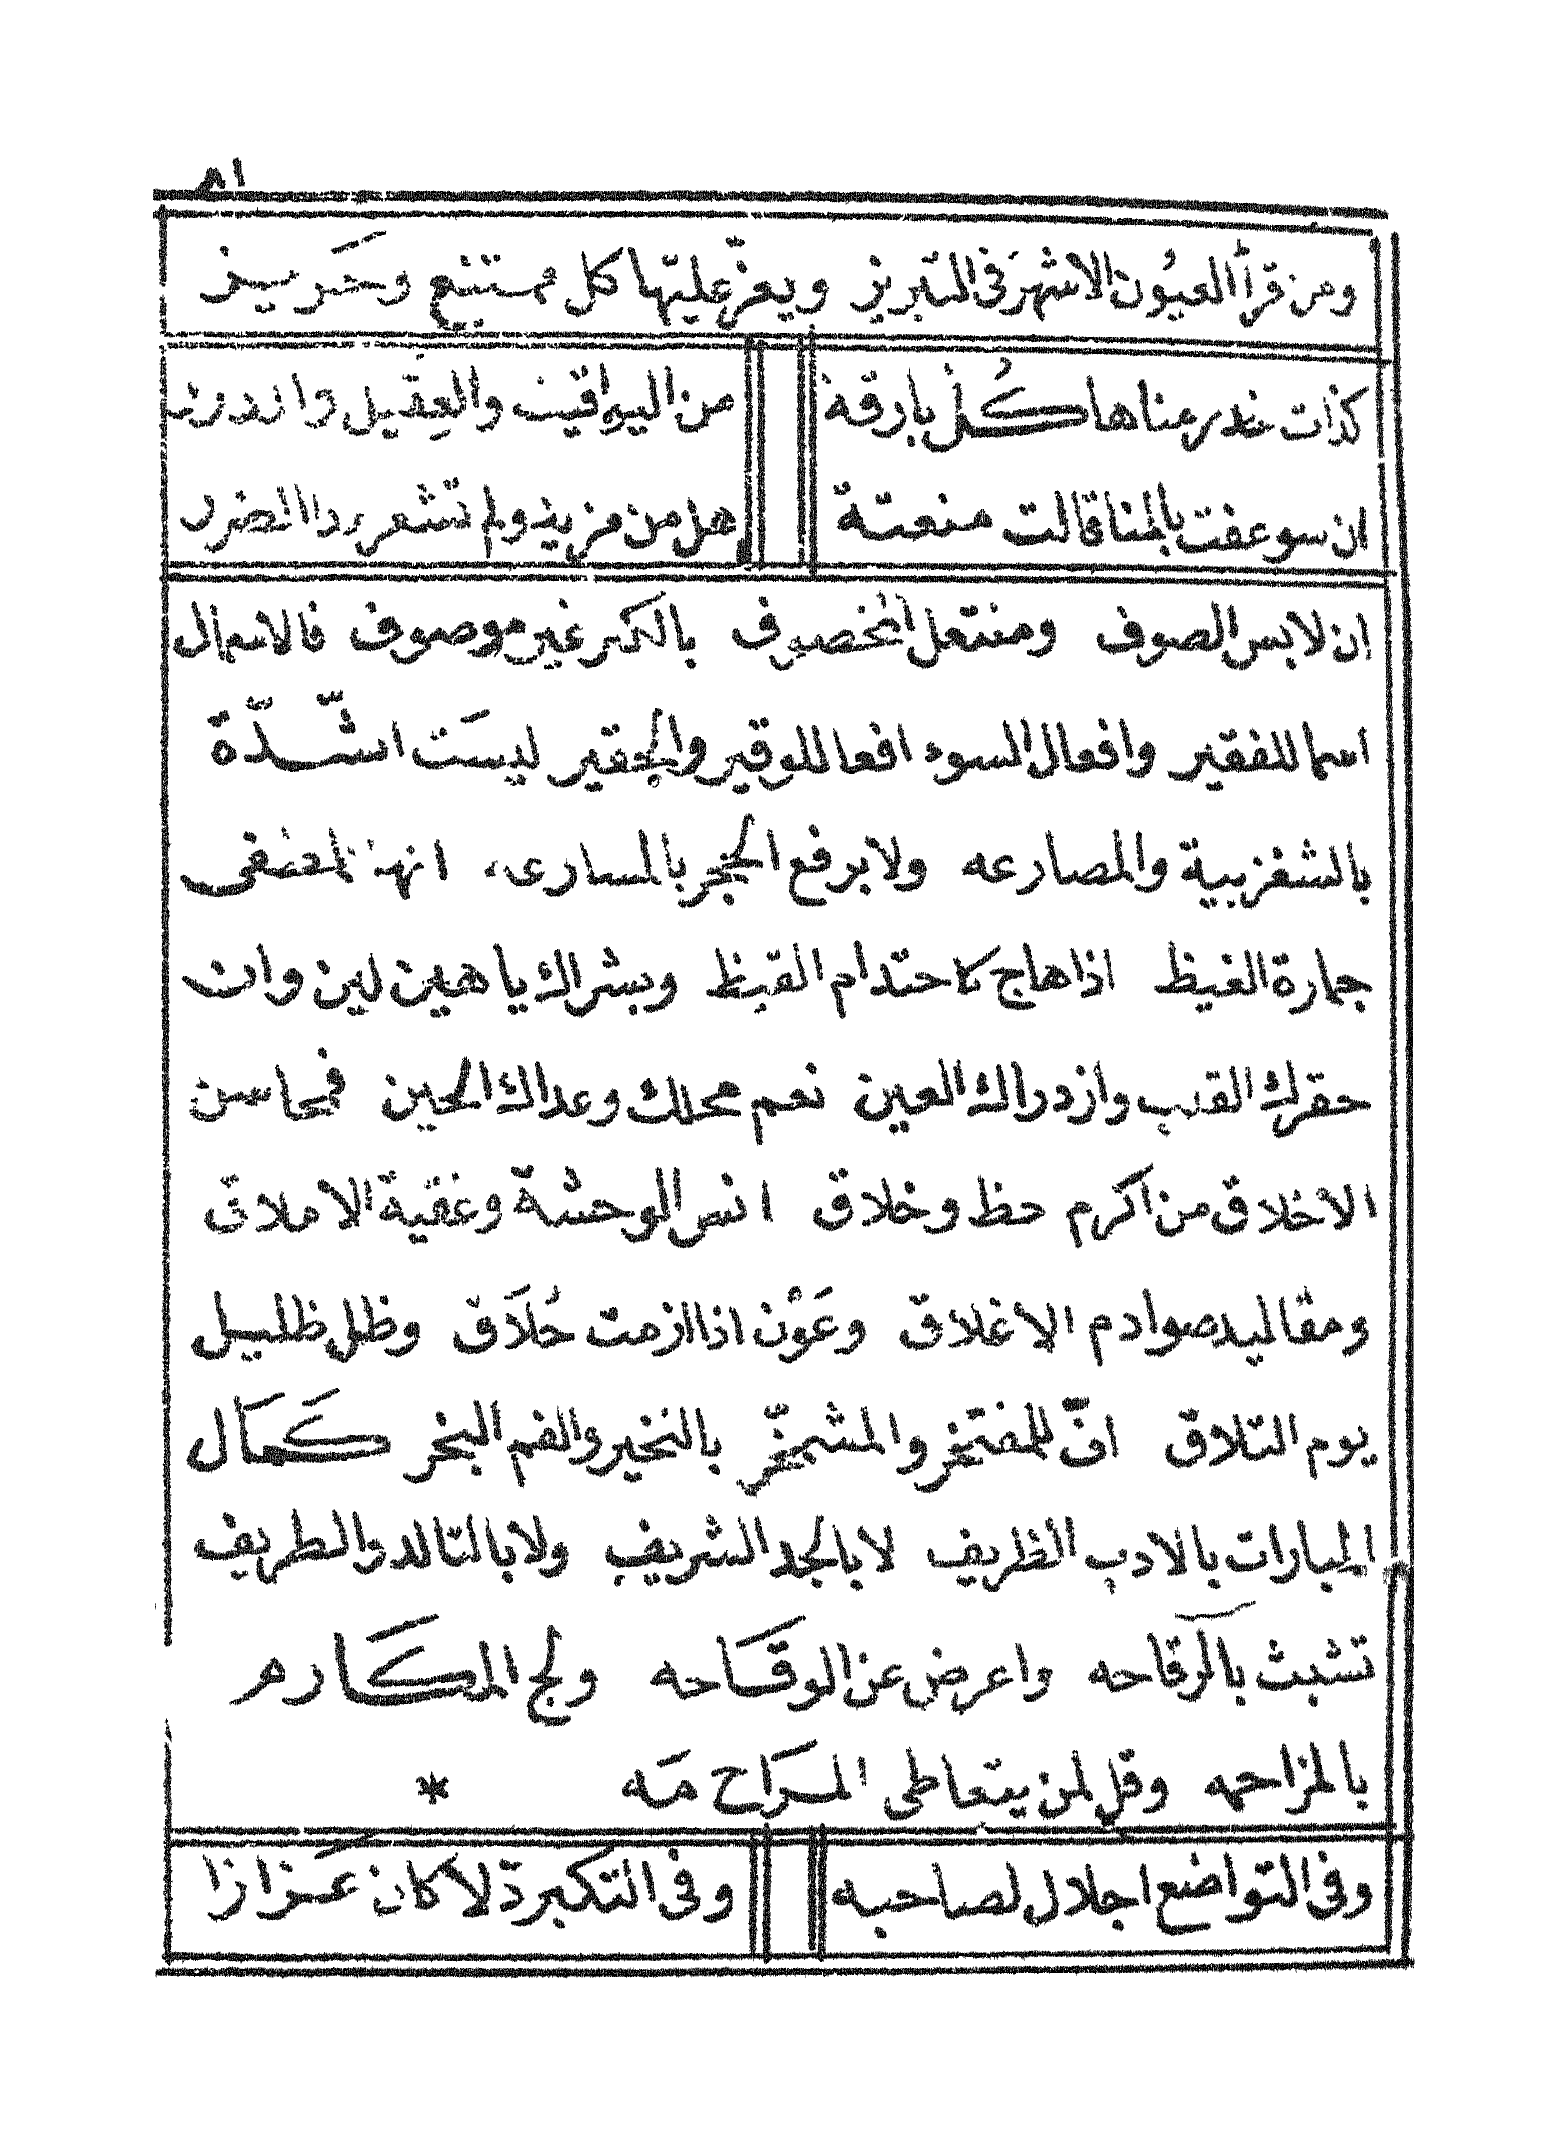 ٥١
ومن قرأ العيون الاشهر فى التبريز ويعز عليها كل ممتنع وحريز
كذات خدر مناها كل بارقة من اليواقيت والعقيل وازدرت
ان سوعفت بالمنا قالت منعتة هل من مزيد ولم تشعر ردا الضرر
ان لابس الصوف ومنتعل المخصوف بالكبر غير موصوف فالاسمال
اسما للفقير وافعال السوء افعا للوقير والحقير ليست اشدة
بالشغزبية والمصارعه ولا برفع الحجر بالمسارى، انها لمصفى
جمارة الغيظ اذا هاج كاحتدام القيظ وبشراك يا هين لين وان
حقرك القلب وازدراك العين نعم محلك وعداك الحين فمحاسن
الاخلاق من اكرم حظ وخلاق انس الوحشة وغقية الاملاق
ومقاليد صوادم الاغلاق وعون اذا ازمت حلاق وظل ظليل
يوم التلاق افّ للمفتخر والمشمخر بالنخير والفم البخر كمال
المبارات بالادب الظريف لا بالجد الشريف ولا بالتالد والطريف
تشبث بالرقاحه واعرض عن الوقاحه ولج المكاره
بالمزاحمه وقل لمن يتعاطى المراح مه *
وفى التواضع اجلال لصاحبه وفى التكبر ذلا كان عزازا